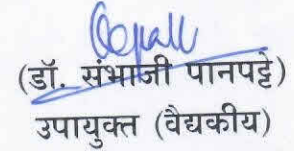 (डॉ. संभाजी पानपट्टे)
उपायुक्त (वैद्यकीय)